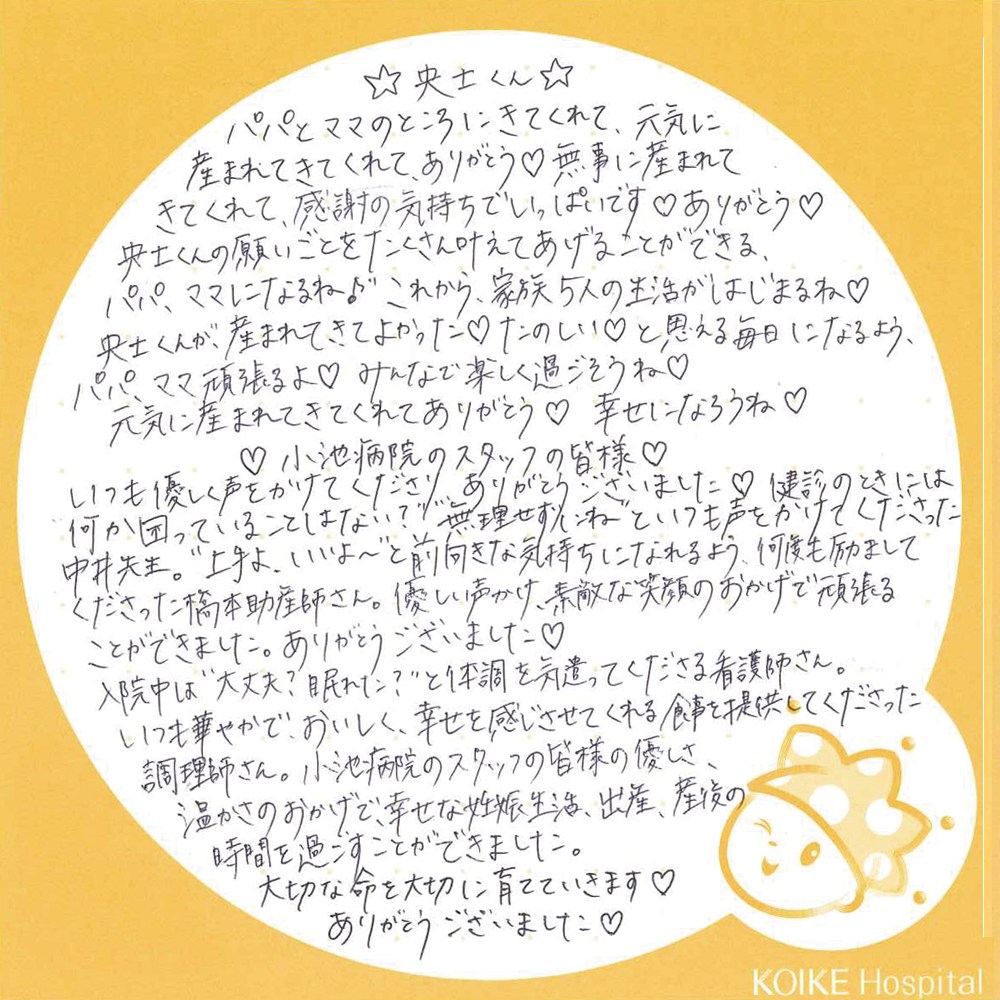 ☆央士くん☆
パパとママのところにきてくれて、元気に
産まれてきてくれて、ありがとう♡無事に産まれて
きてくれて、感謝の気持ちでいっぱいです♡ありがとう♡
央士くんの願いごとをたくさん叶えてあげることができる、
パパ、ママになるね♪これから、家族5人の生活がはじまるね♡
央士くんが、産まれてきてよかった♡たのしい♡と思える毎日になるよう、
パパ、ママ頑張るよ♡みんなで楽しく過ごそうね♡
元気に産まれてきてくれてありがとう♡幸せになろうね♡
♡小池病院のスタッフの皆様♡
いつも優しく声をかけてくださり、ありがとうございました♡健診のときには
"何か困っていることはない?""無理せずにね"といつも声をかけてくださった
中井先生。"上手よ、いいよ〜"と前向きな気持ちになれるよう、何度も励まして
くださった橋本助産師さん。優しい声かけ、素敵な笑顔のおかげで頑張る
ことができました。ありがとうございました♡
入院中は"大丈夫?眠れた?"と体調を気遣ってくださる看護師さん。
いつも華やかで、おいしく、幸せを感じさせてくれる食事を提供してくださった
調理師さん。小池病院のスタッフの皆様の優しさ、
温かさのおかげで、幸せな妊娠生活、出産、産後の
時間を過ごすことができました。
大切な命を大切に育てていきます♡
ありがとうございました♡
KOIKE Hospital